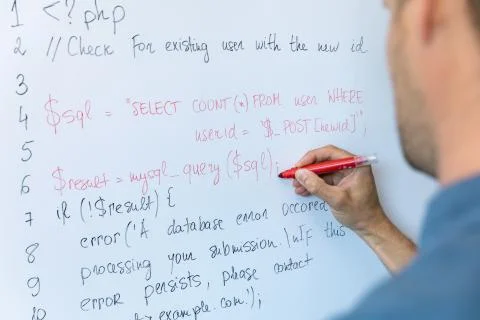 1 <?php
2 //Check For existing user with the new id
3
4 $sql = "SELECT COUNT(*) FROM user WHERE
5 userid = '$_POST[newid]'";
6 $result = mysql_query($sql);
7 if (!$result) {
8 error('A database error occored
9 processing your submission.\nIf this
10 error persists, please contact
example.com.');